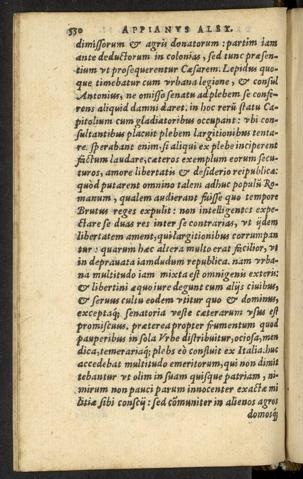 530 APPIANVS ALEX.
dimissorum & agris donatorum: partim iam
ante deductorum in colonias, sed tunc præsen-
tium vt prosequerentur Cæsarem. Lepidus quo-
que timebatur cum vrbana legione, & consul
Antonius, ne omisso senatu ad plebem se confe-
rens aliquid damni daret. in hoc rerū statu Ca-
pitolium cum gladiatoribus occupant: vbi con-
sultantibus placuit plebem largitionibus tenta-
re. sperabant enim, si aliqui ex plebe inciperent
factum laudare, cæteros exemplum eorum secu-
turos, amore libertatis & desiderio reipublicæ:
quòd putarent omnino talem adhuc populū Ro-
manum, qualem audierant fuisse quo tempore
Brutus reges expulit: non intelligentes expe-
ctare se duas res inter se contrarias, vt ijdem
libertatem ament, qui largitionibus corrumpan
tur: quarum hæc altera multo erat facilior, vt
in deprauata iamdudum republica. nam vrba-
na multitudo iam mixta est omnigenis exteris:
& libertini æquo iure degunt cum alijs ciuibus,
& seruus cultu eodem vtitur quo & dominus,
exceptaq́; senatoria veste cæterarum vsus est
promiscuus. præterea propter frumentum quod
pauperibus in sola Vrbe distribuitur, ociosa, men
dica, temerariaq́; plebs eò confluit ex Italia. huc
accedebat multitudo emeritorum, qui non dimit
tebantur vt olim in suam quisque patriam, ni-
mirum non pauci parum innocenter exactæ mi
litiæ sibi conscij: sed cōmuniter in alienos agros
domosq́;